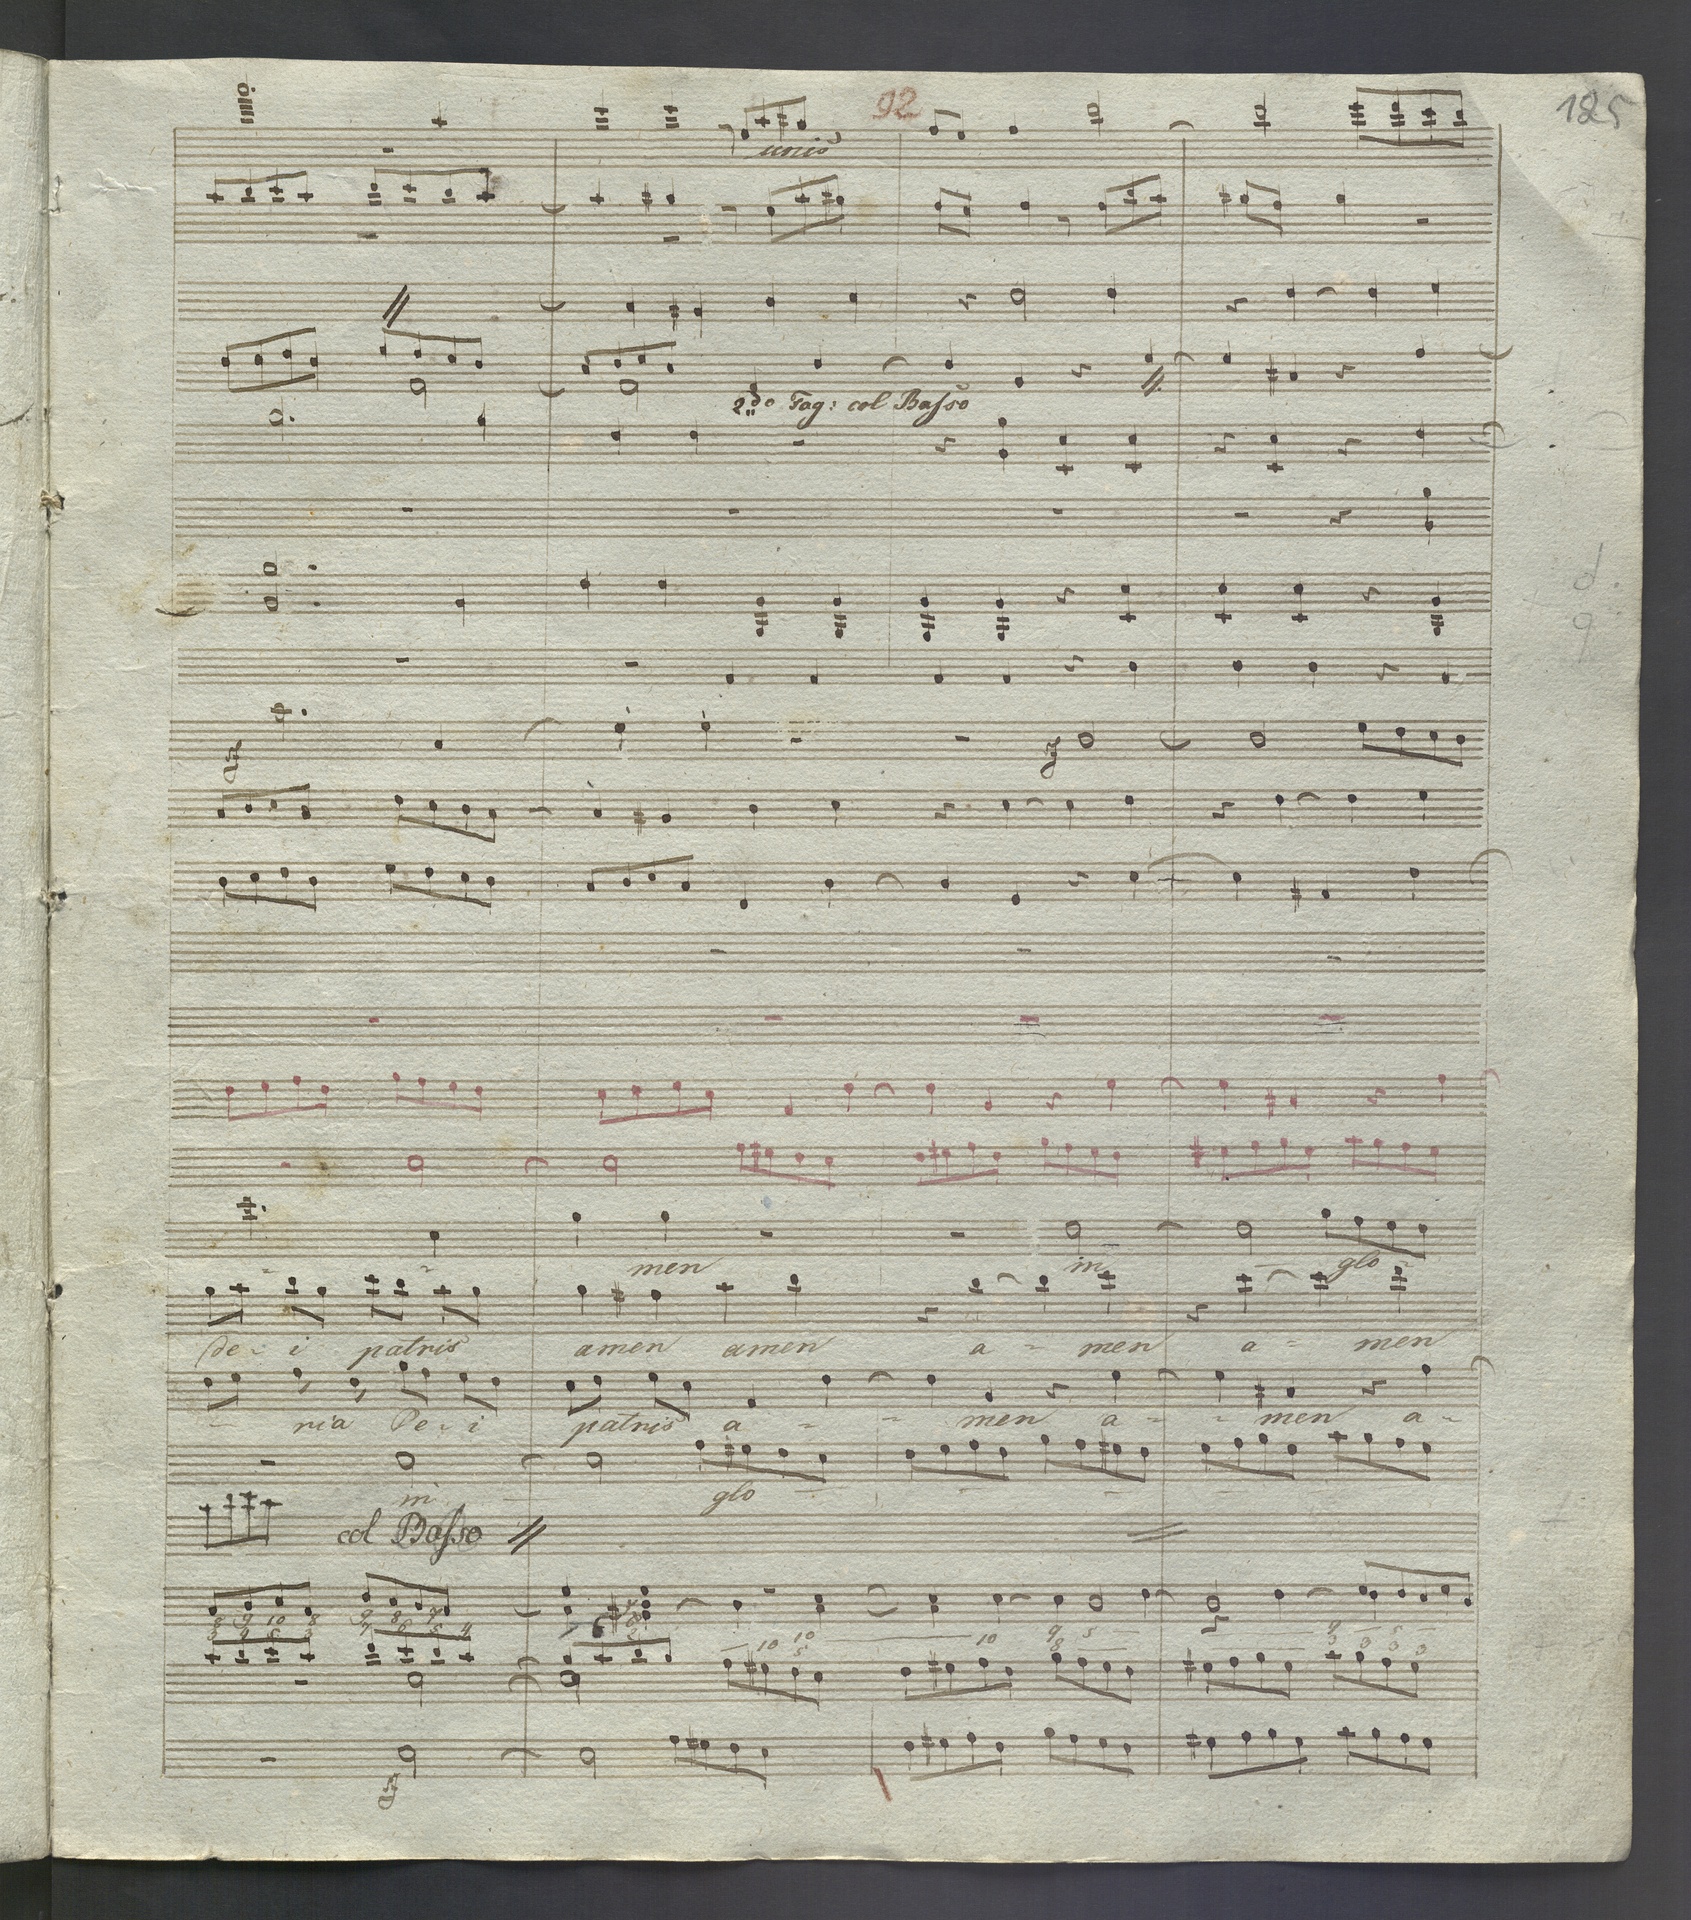 92
125
unis
2do Fag: col Basso
men in glo
De - i patris amen amen a - men a - men
ria De - i patris a - - men a - - men a -
in glo
col Basso